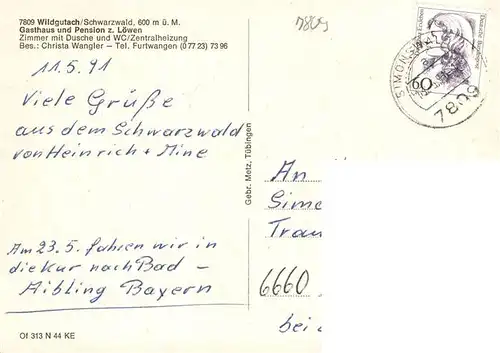 7809 Wildgutach/Schwarzwald, 600 m ü. M.
Gasthaus und Pension z. Löwen
Zimmer mit Dusche und WC/Zentralheizung
Bes.: Christa Wangler – Tel. Furtwangen (0 77 23) 73 96
11.5.91
Viele Grüße
aus dem Schwarzwald
von Heinrich + Mine
Am 23.5. fahren wir in
die Kur nach Bad –
Aibling Bayern
Of 313 N 44 KE
Gebr. Metz, Tübingen
7809
Deutsche Bundespost
60
SIMONSWALD
7809
An
Sim
Trau
6660
bei